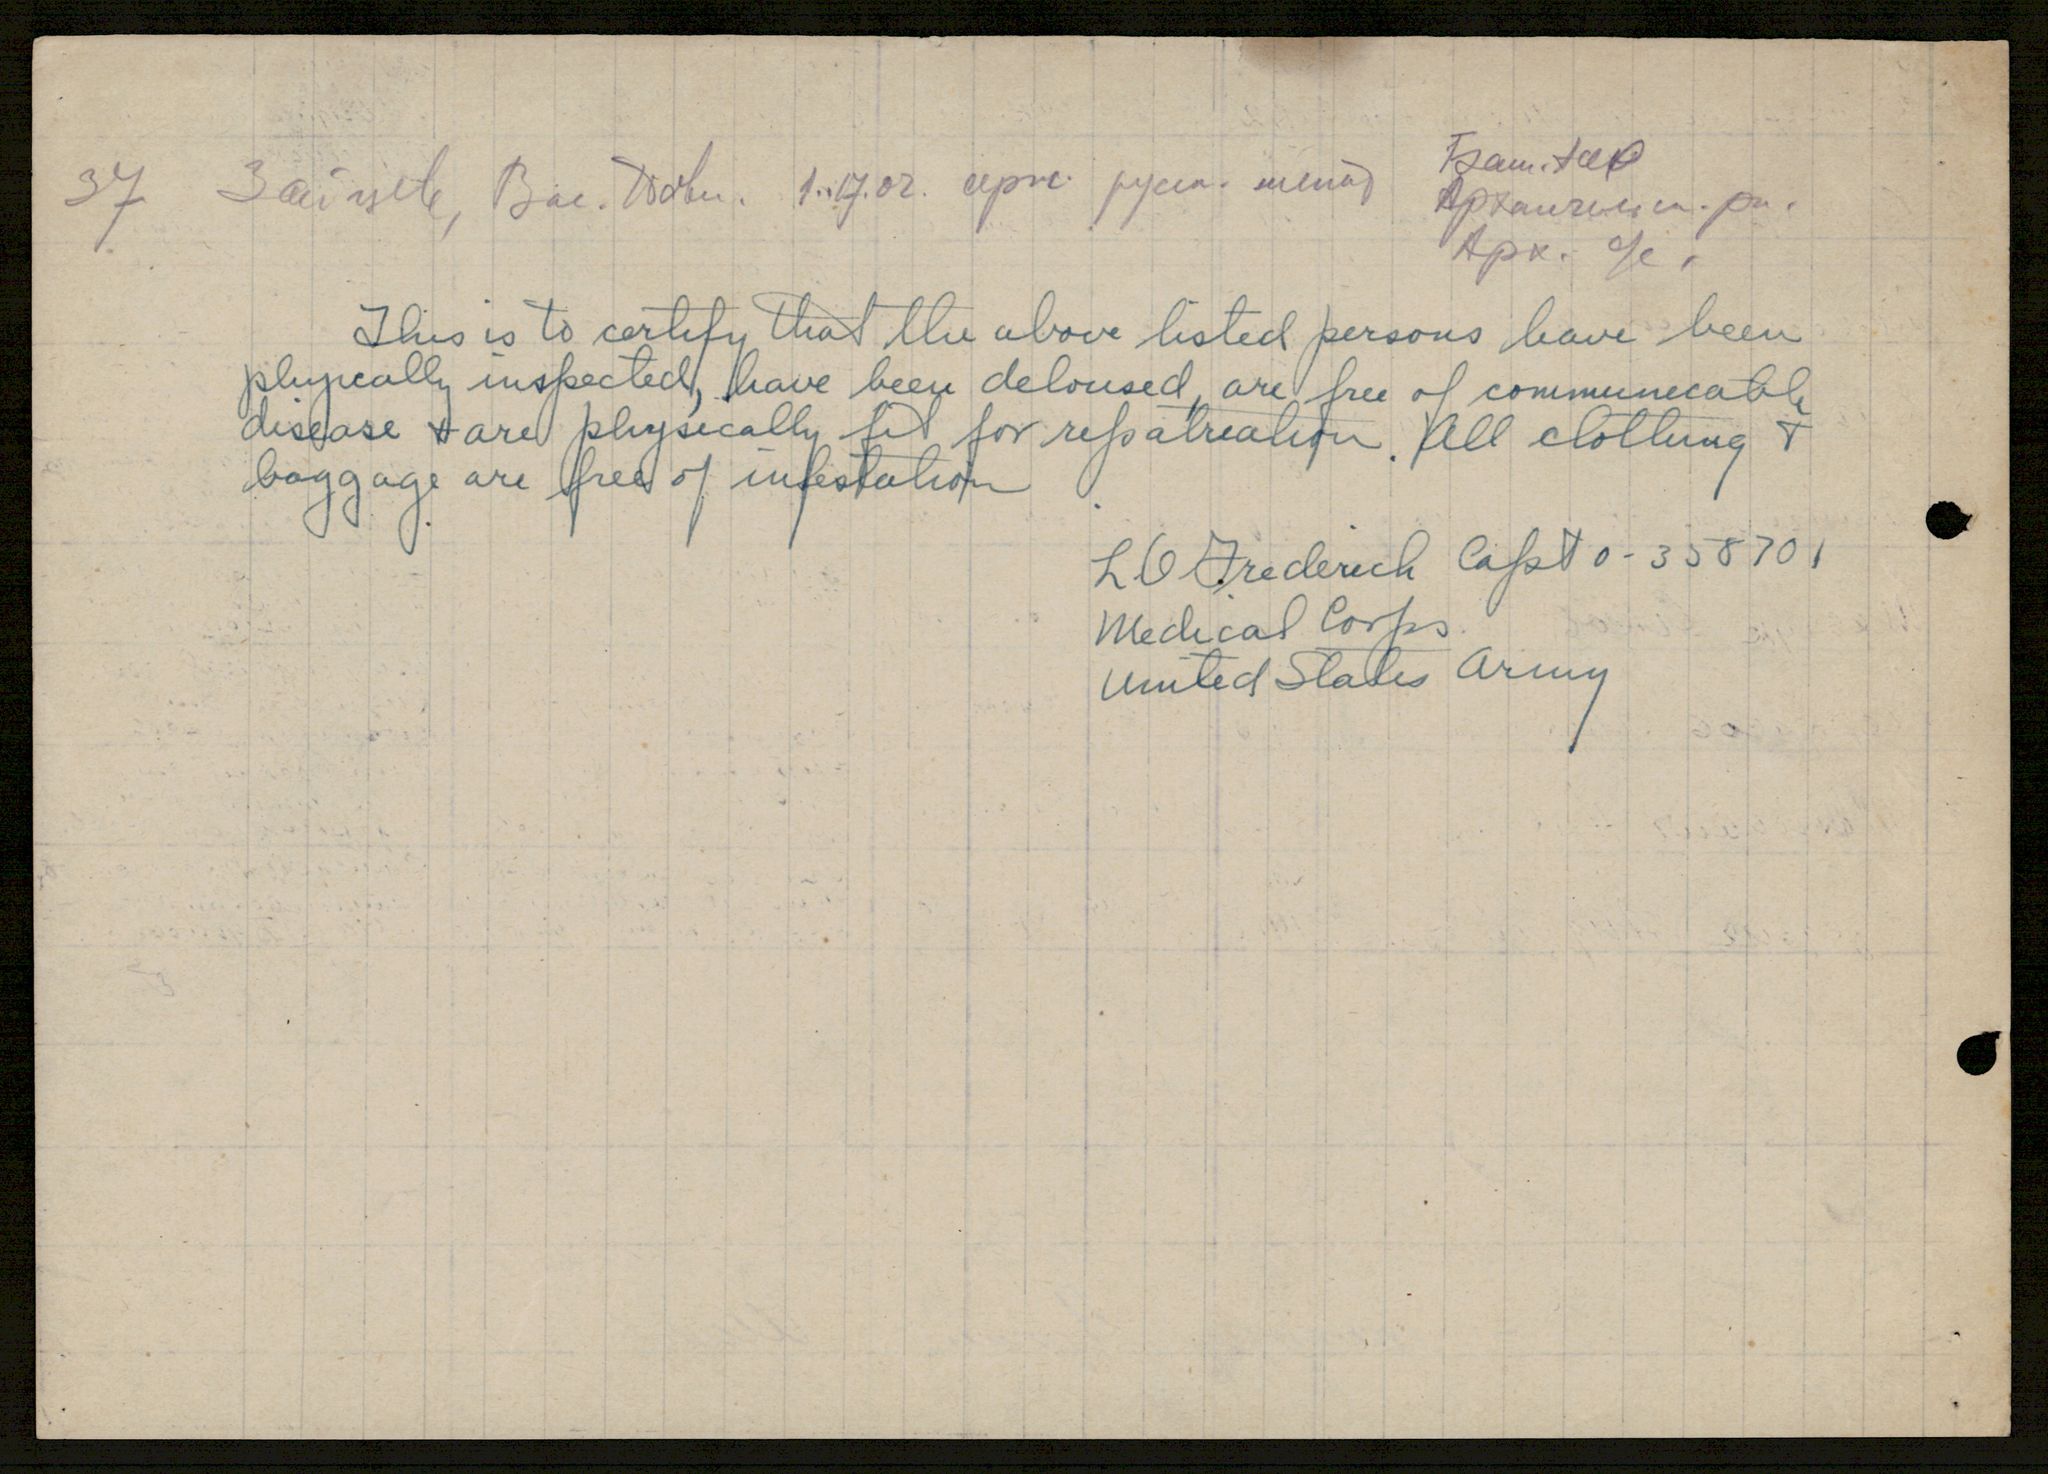 37 Зайцев, Вас. 1.17.02. серж. русск. женат
Архангельск. рн.
Арх. о/с.
This is to certify that the above listed persons have been
physically inspected, have been deloused, are free of communicable
disease & are physically fit for repatriation. All clothing &
baggage are free of infestation
L O Frederick Capt O-358701
Medical Corps
United States Army